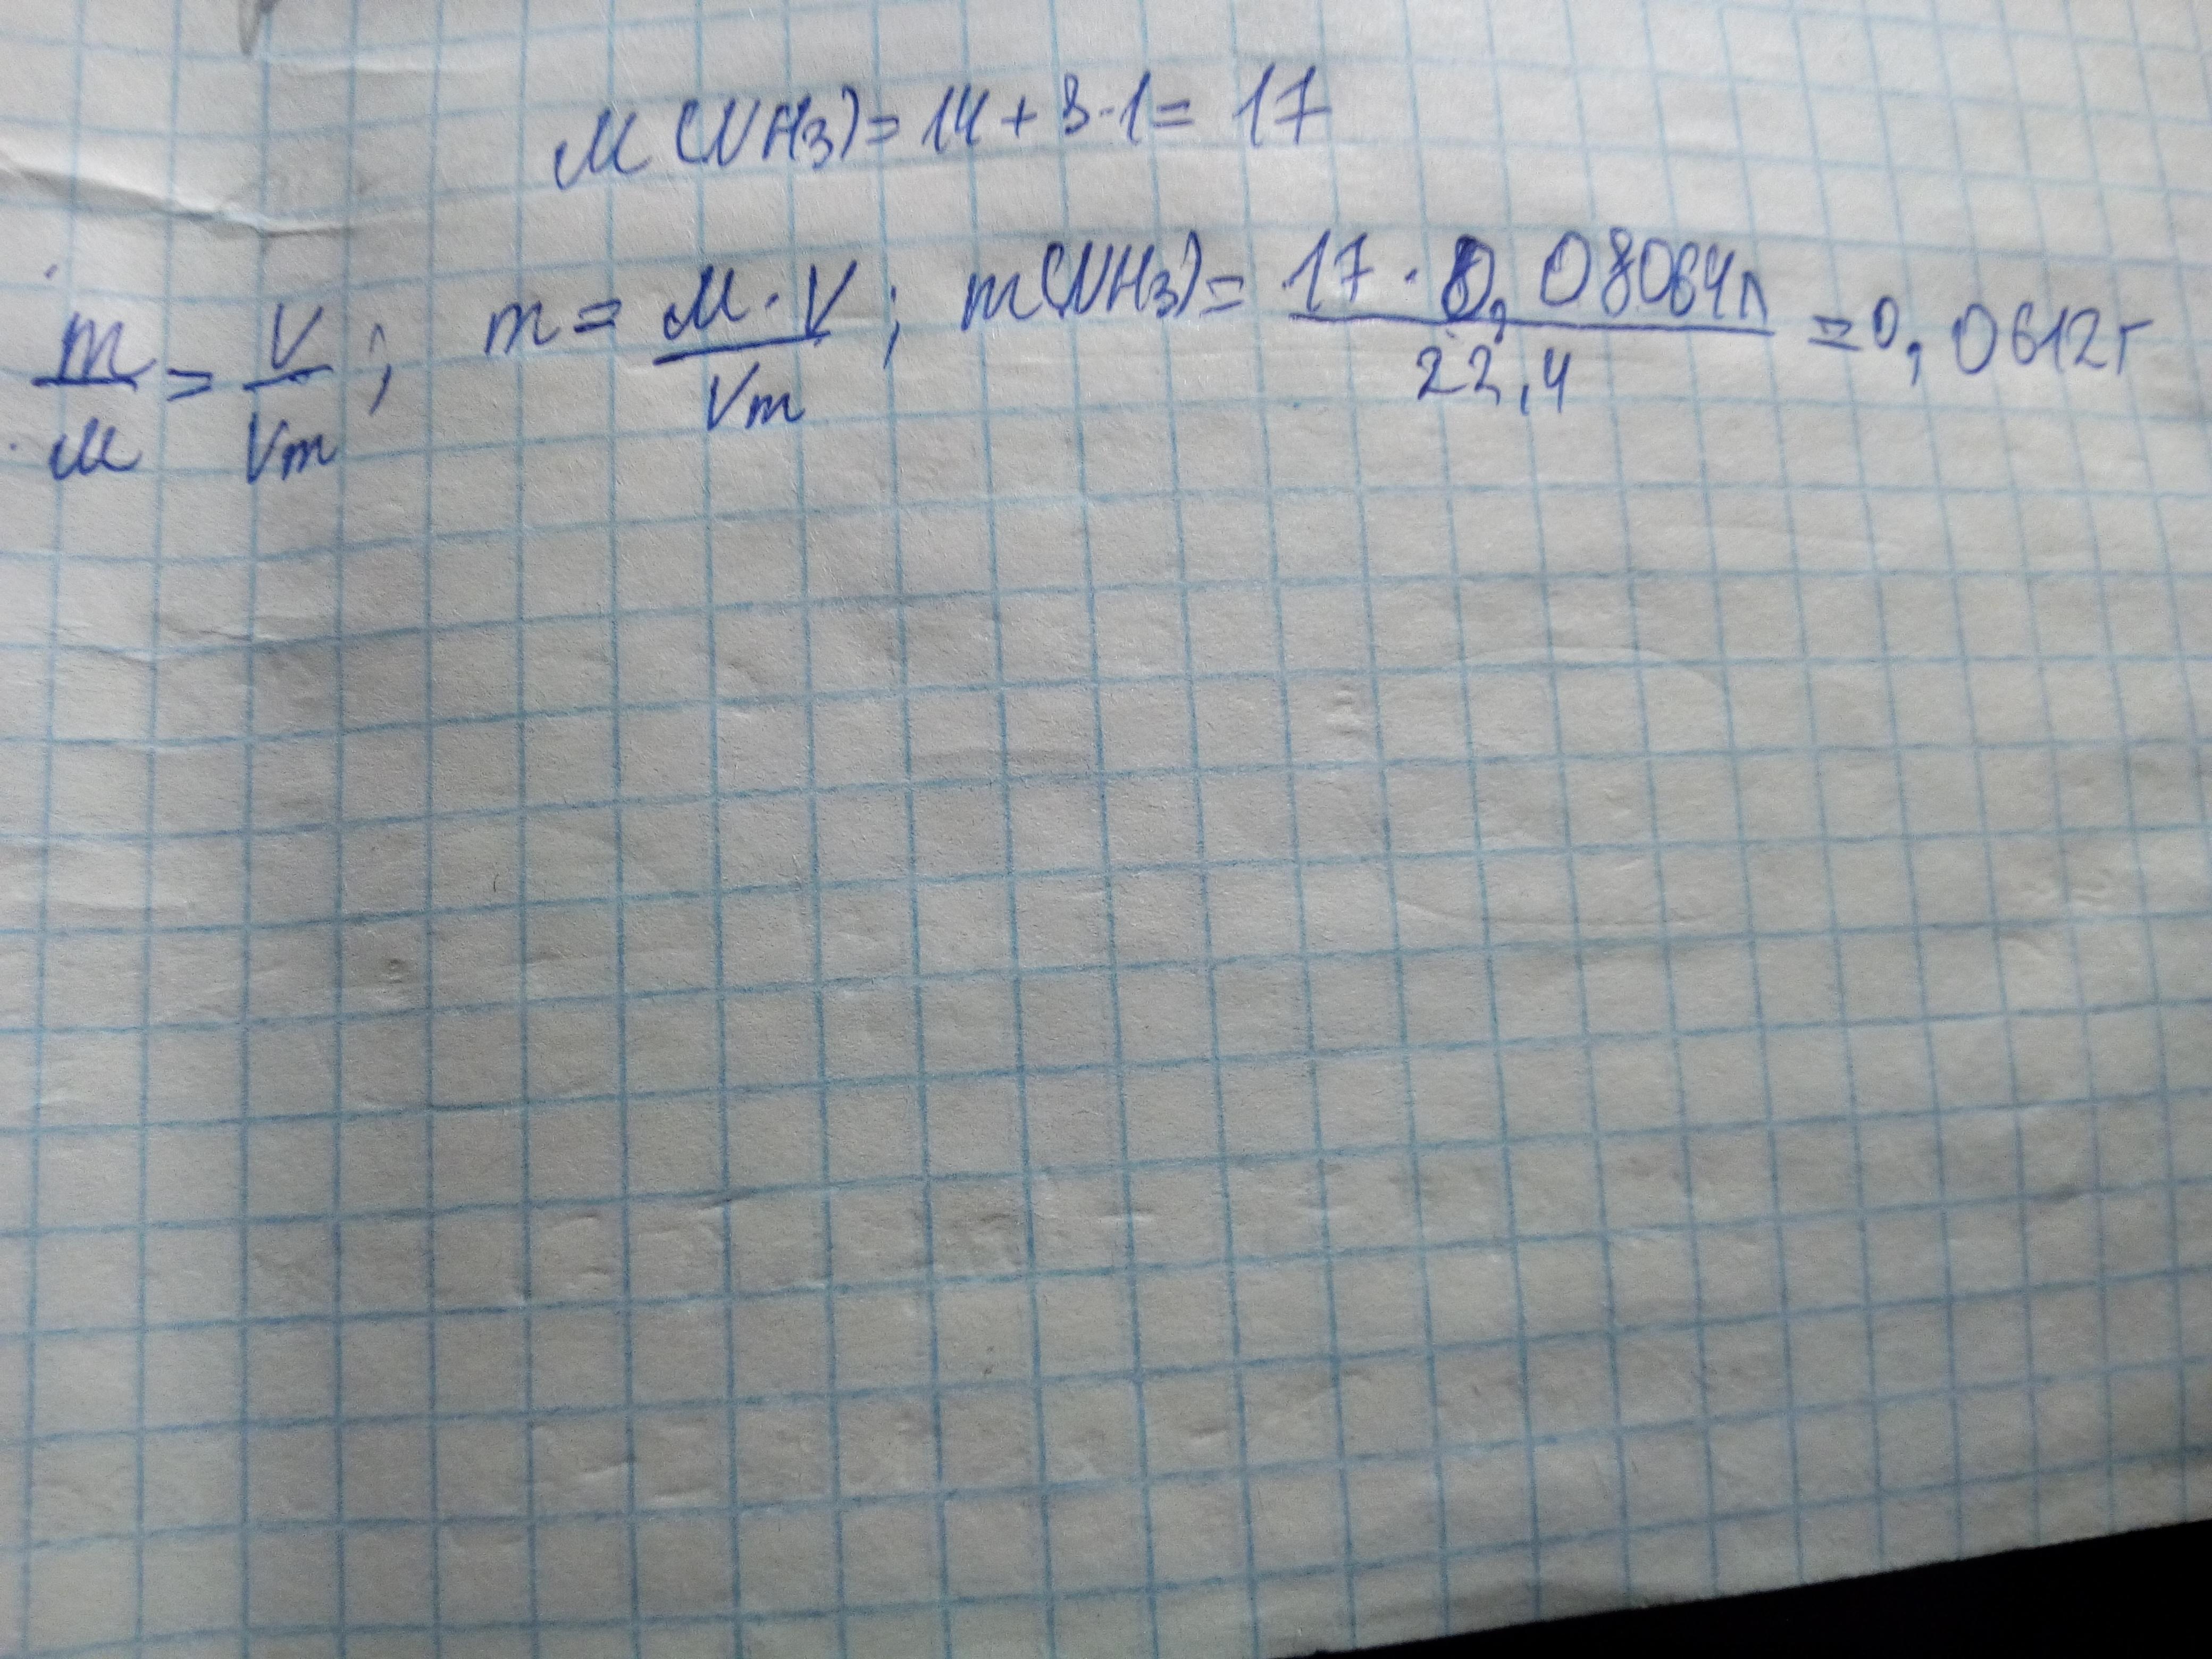 M(NH₃) = 14 + 3·1 = 17
m/M = V/Vm; m = M·V/Vm; m(NH₃) = 17·0,08064л/22,4 = 0,0612г